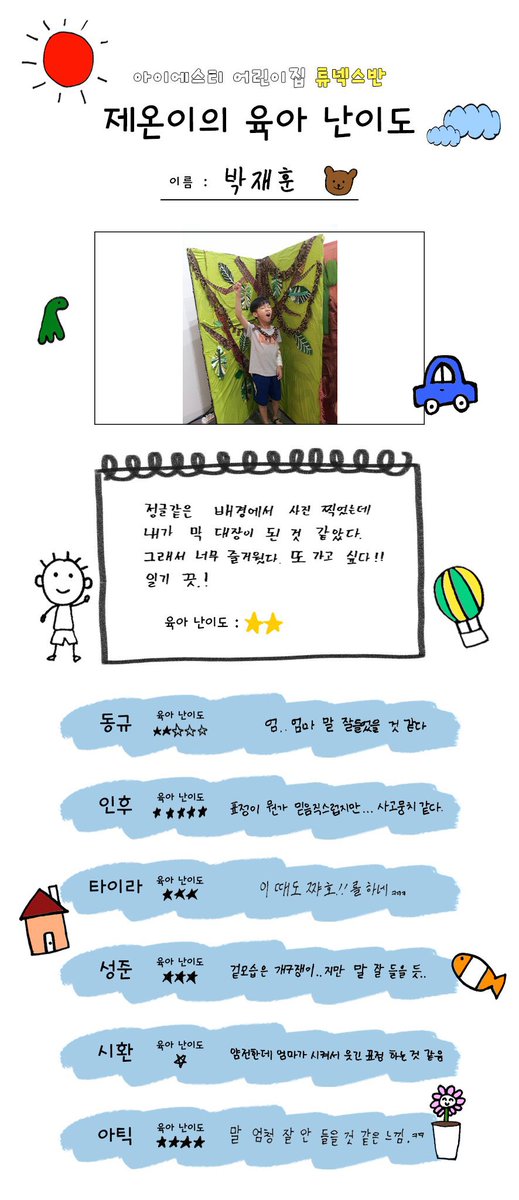 아이에스티 어린이집 튜넥스반
제온이의 육아 난이도
이름 : 박재훈
정글같은 배경에서 사진 찍었는데
내가 막 대장이 된 것 같았다.
그래서 너무 즐거웠다. 또 가고 싶다!!
일기 끗.!
육아 난이도 : ★★
동규 육아 난이도 ★★☆☆☆ 엄.. 엄마 말 잘들었을 것 같다
인후 육아 난이도 ★★★★★ 표정이 뭔가 믿음직스럽지만... 사고뭉치 같다.
타이라 육아 난이도 ★★★ 이 때도 쨔호!!를 하네 ㅋㅋㅋ
성준 육아 난이도 ★★★ 겉모습은 개구쟁이..지만 말 잘 들을 듯..
시환 육아 난이도 ☆ 얌전한데 엄마가 시켜서 웃긴 표정 하는 것 같음
아틱 육아 난이도 ★★★★ 말 엄청 잘 안 들을 것 같은 느낌.ㅋㅋ